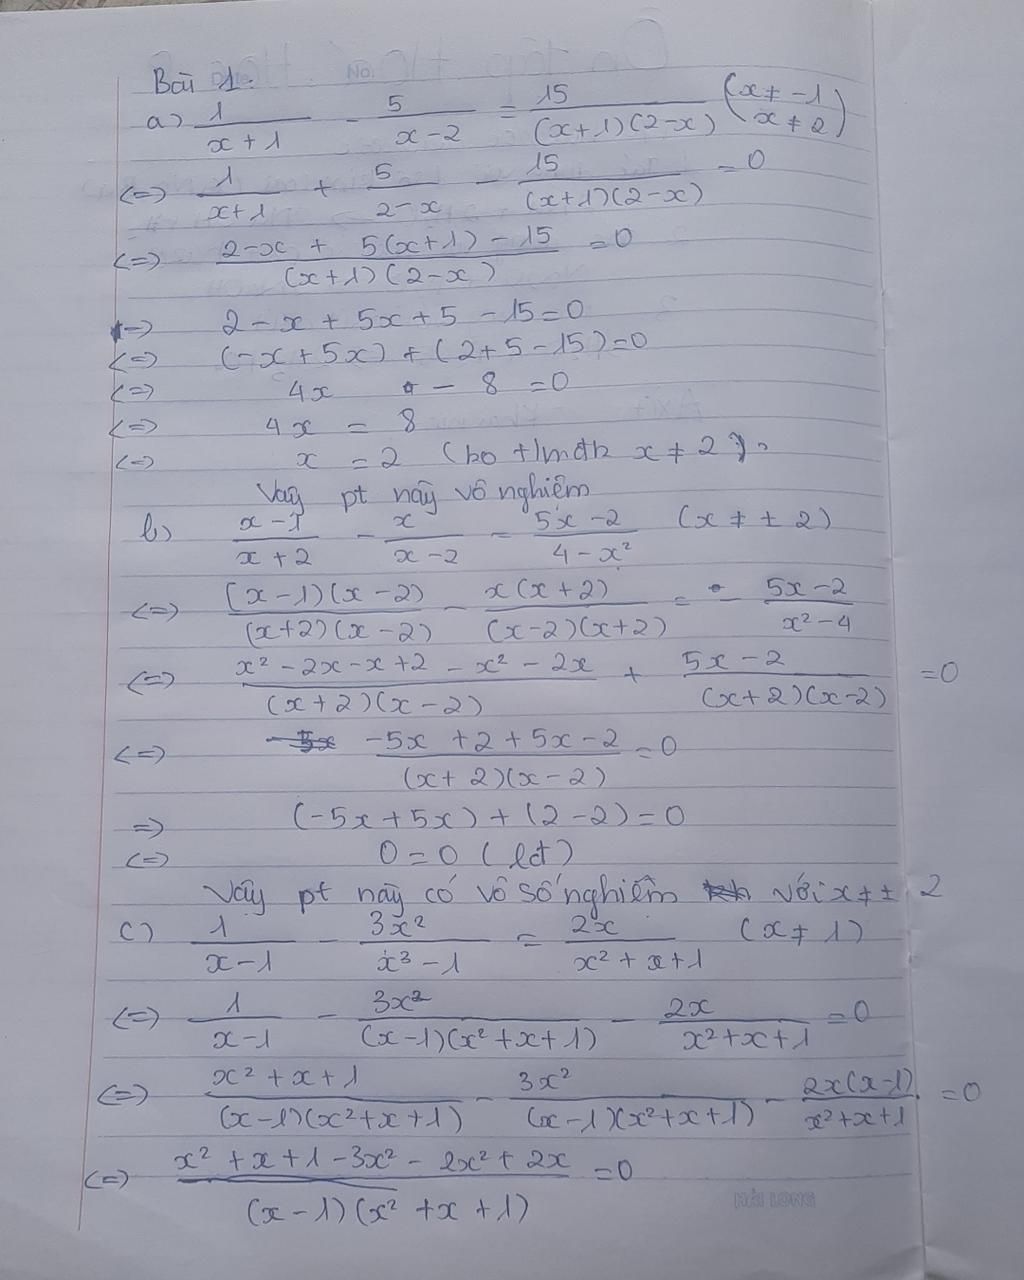 Bài 1.
a) 1/(x+1) - 5/(x-2) = 15/((x+1)(2-x)) (x ≠ -1 x ≠ 2)
<=> 1/(x+1) + 5/(2-x) - 15/((x+1)(2-x)) = 0
<=> (2-x + 5(x+1) - 15)/((x+1)(2-x)) = 0
=> 2 - x + 5x + 5 - 15 = 0
<=> (-x + 5x) + (2+5-15) = 0
<=> 4x - 8 = 0
<=> 4x = 8
<=> x = 2 (ko t/mđk x ≠ 2).
Vậy pt này vô nghiệm
b) (x-1)/(x+2) - x/(x-2) = (5x-2)/(4-x²) (x ≠ ± 2)
<=> ((x-1)(x-2))/((x+2)(x-2)) - (x(x+2))/((x-2)(x+2)) = - (5x-2)/(x²-4)
<=> (x² - 2x - x + 2 - x² - 2x)/((x+2)(x-2)) + (5x-2)/((x+2)(x-2)) = 0
<=> (-5x + 2 + 5x - 2)/((x+2)(x-2)) = 0
=> (-5x + 5x) + (2-2) = 0
<=> 0 = 0 (lđ)
Vậy pt này có vô số nghiệm với x ≠ ± 2
c) 1/(x-1) - 3x²/(x³-1) = 2x/(x²+x+1) (x ≠ 1)
<=> 1/(x-1) - 3x²/((x-1)(x²+x+1)) - 2x/(x²+x+1) = 0
<=> (x²+x+1)/((x-1)(x²+x+1)) - 3x²/((x-1)(x²+x+1)) - 2x(x-1)/(x²+x+1) = 0
<=> (x² + x + 1 - 3x² - 2x² + 2x)/((x-1)(x²+x+1)) = 0
HẢI LONG